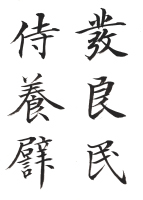 發良民
侍養譬